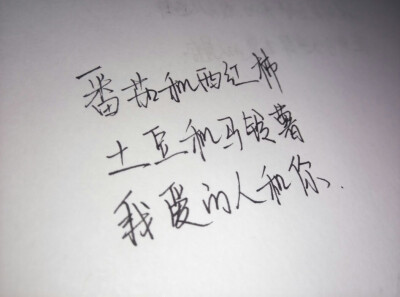 番茄和西红柿
土豆和马铃薯
我爱的人和你.